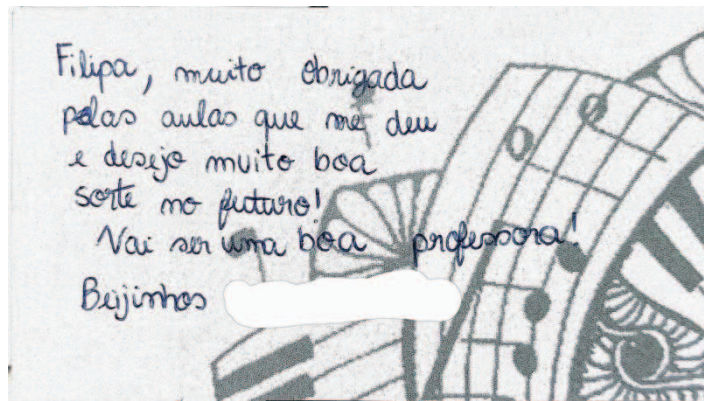 Filipa, muito obrigada
pelas aulas que me deu
e desejo muito boa
sorte no futuro!
Vai ser uma boa professora!
Beijinhos